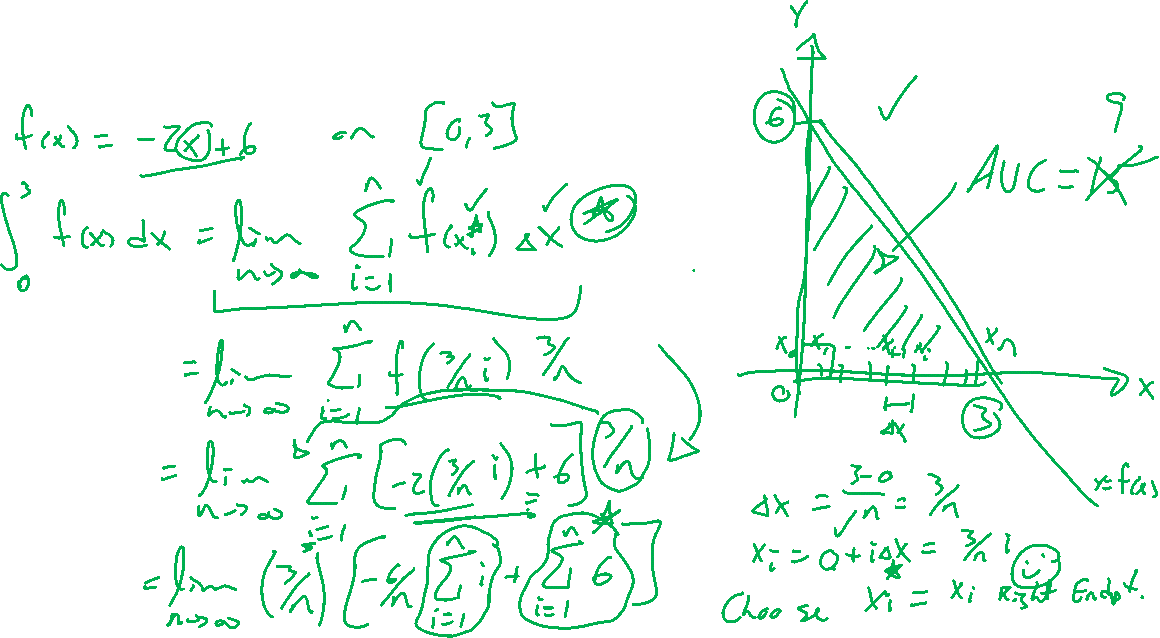 f(x) = -2x + 6 on [0,3]
∫₀³ f(x) dx = lim n→∞ Σ i=1 n f(xᵢ*) Δx ☆
= lim n→∞ Σ i=1 n f(3/n i) 3/n
= lim n→∞ Σ i=1 n [-2(3/n i) + 6] 3/n
= lim n→∞ (3/n) [-6/n Σ i=1 n i + Σ i=1 n 6]
Y
6 ✓
9
AUC =
x₀ x₁ ... xᵢ₋₁ xᵢ xₙ
0 Δx 3 X
Y=f(x)
Δx = 3-0/n = 3/n
xᵢ = 0 + iΔx = 3/n i
Choose xᵢ* = xᵢ Right Endpt.